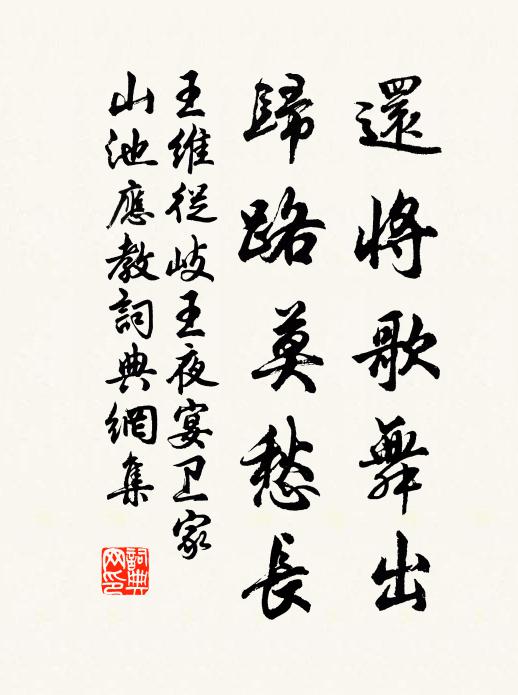 還將歌舞出
歸路莫愁長
王維從岐王夜宴卫家
山池應教詞典網集
詞典網印